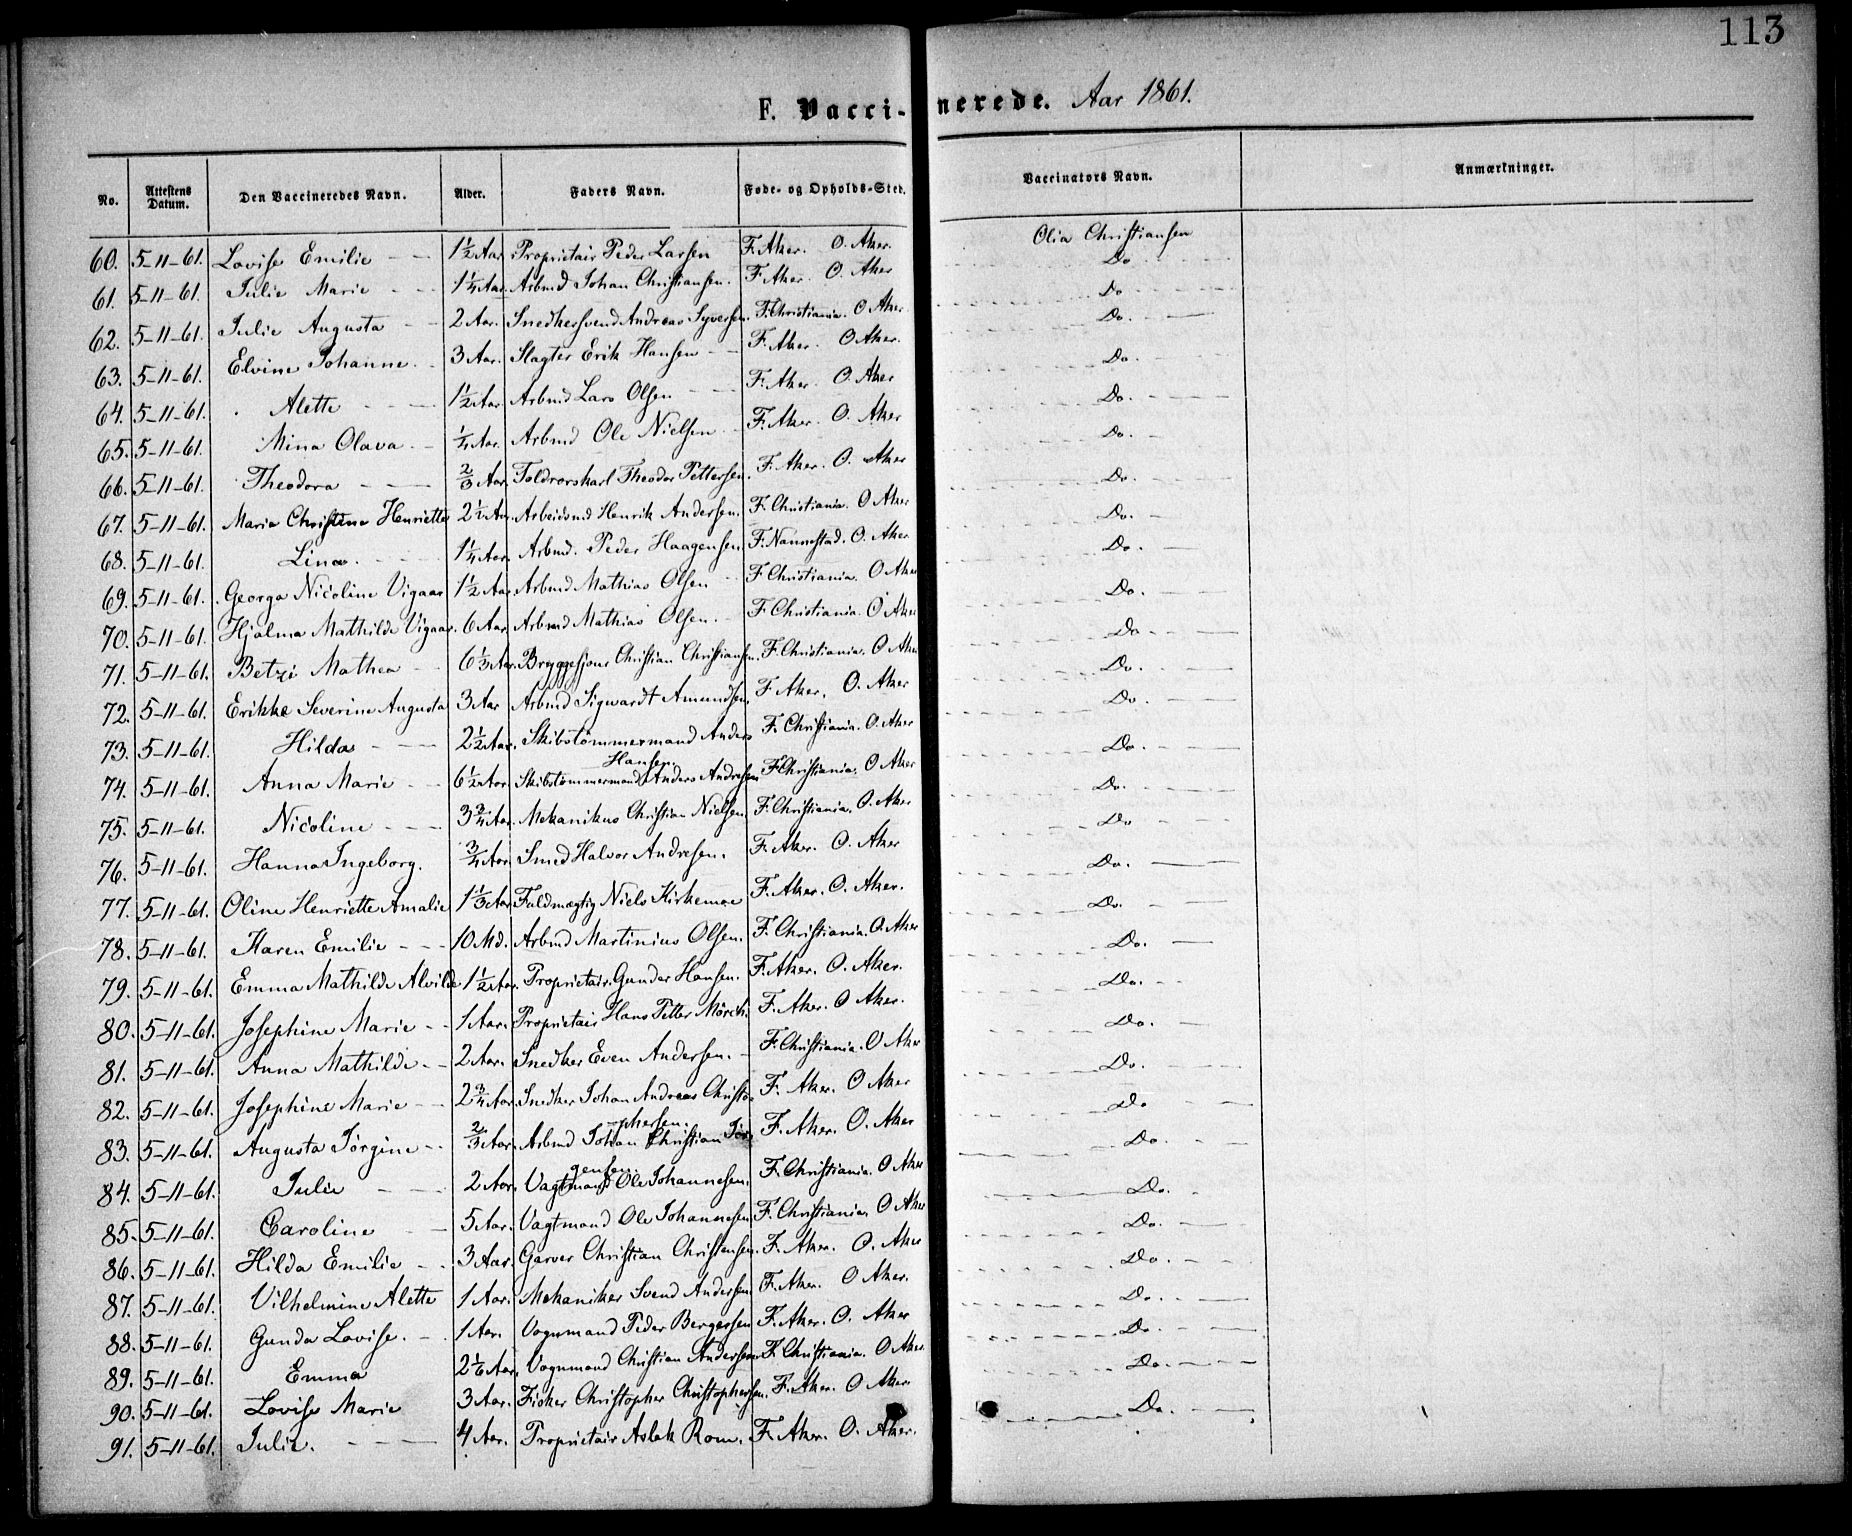 113
F. Vaccinerede. Aar 1861.
No. Attestens Datum. Den Vaccineredes Navn. Alder. Faders Navn. Føde- og Opholds-Sted. Vaccinators Navn. Anmærkninger.
60. 5-11-61. Lovise Emilie 1½ Aar Proprietair Peder Larsen F. Aker. O. Aker. Olia Christiansen
61. 5-11-61. Julie Marie 1¼ Aar Arbmd Johan Christiansen. F. Aker. O. Aker Do
62. 5-11-61. Julie Augusta 2 Aar. Snedkersvend Andreas Syversen. F. Christiania. O Aker. Do.
63. 5-11-61. Elvine Johanne. 3 Aar. Slagter Erik Hansen F. Aker. O Aker. Do.
64. 5-11-61. Alette 1½ Aar Arbmd Lars Olsen F. Aker. O. Aker Do.
65. 5-11-61. Mina Olava. ¼ Aar. Arbmd Ole Nielsen F. Aker. O. Aker Do.
66. 5-11-61. Theodora ⅔ Aar. Toldrorskarl Theodor Pettersen. F. Aker. O. Aker Do.
67. 5-11-61. Marie Christine Henriette 2½ Aar. Arbeidsmd Henrik Andersen. F. Christiania. O Aker Do.
68. 5-11-61. Lina. 1¼ Aar. Arbmd. Peder Haagensen F. Nannestad. O. Aker. Do.
69. 5-11-61. Georga Nicoline Vigaar 1½ Aar Arbmd Mathias Olsen F Christiania. O Aker Do.
70. 5-11-61. Hjalma Mathilde Vigaar. 6 Aar. Arbmd Mathias Olsen. F. Christiania. O Aker Do.
71. 5-11-61. Betzi Mathea 6⅓ Aar. Bryggesjouer Christian Christiansen. F. Christiania. O Aker Do
72. 5-11-61. Erikke Severine Augusta 3 Aar Arbmd Sigwardt Amundsen. F. Aker. O. Aker Do.
73. 5-11-61. Hilda 2½ Aar. Skibstømmermand Anders Hansen F. Christiania. O. Aker Do.
74. 5-11-61. Anna Marie 6½ Aar. Skibstømmermand Anders Andresen F Christiania. O Aker Do.
75. 5-11-61. Nicoline 3¾ Aar. Mekanikus Christian Nielsen. F. Christiania. O. Aker Do.
76. 5-11-61. Hanna Ingeborg. ¾ Aar. Smed Halvor Andresen. F. Aker. O. Aker Do
77. 5-11-61. Oline Henriette Amalie 1⅓ Aar. Fuldmægtig Niels Kirkemoe F. Aker. O. Aker. Do.
78. 5-11-61. Karen Emilie 10 Md. Arbmd Martinius Olsen. F. Christiania. O. Aker Do.
79. 5-11-61. Emma Mathilde Alvilde 1½ Aar. Proprietair Gunder Hansen. F. Aker. O. Aker. Do.
80. 5-11-61. Josephine Marie 1 Aar. Proprietair Hans Petter Mørch. F. Aker. O Aker. Do.
81. 5-11-61. Anna Mathilde 2 Aar. Snedker Even Andersen. F. Christiania. O Aker Do.
82. 5-11-61. Josephine Marie 2¾ Aar. Snedker Johan Andreas Christophersen. F. Aker. O Aker Do.
83. 5-11-61. Augusta Jørgine ⅔ Aar. Arbmd Johan Christian Jørgensen. F. Aker. O. Aker Do
84. 5-11-61. Julie 2 Aar. Vagtmand Ole Johannesen. F. Christiania. O Aker Do.
85. 5-11-61. Caroline 5 Aar. Vagtmand Ole Johannesen F. Christiania. O Aker Do.
86. 5-11-61. Hilda Emilie 3 Aar. Garver Christian Christensen. F. Aker. O. Aker Do.
87. 5-11-61. Vilhelmine Alette 1 Aar. Mekaniker Svend Andersen F. Aker. O Aker. Do.
88. 5-11-61. Gunda Lovise. 1 Aar. Vognmand Peder Bergersen F. Aker. O. Aker Do.
89. 5-11-61. Emma 2⅙ Aar. Vognmand Christian Andersen. F. Christiania. O Aker. Do.
90. 5-11-61. Lovise Marie 3 Aar. Fisker Christopher Christophersen. F. Aker. O Aker. Do.
91. 5-11-61. Julie. 4 Aar. Proprietair Aslak Rom. F. Aker. O. Aker. Do.